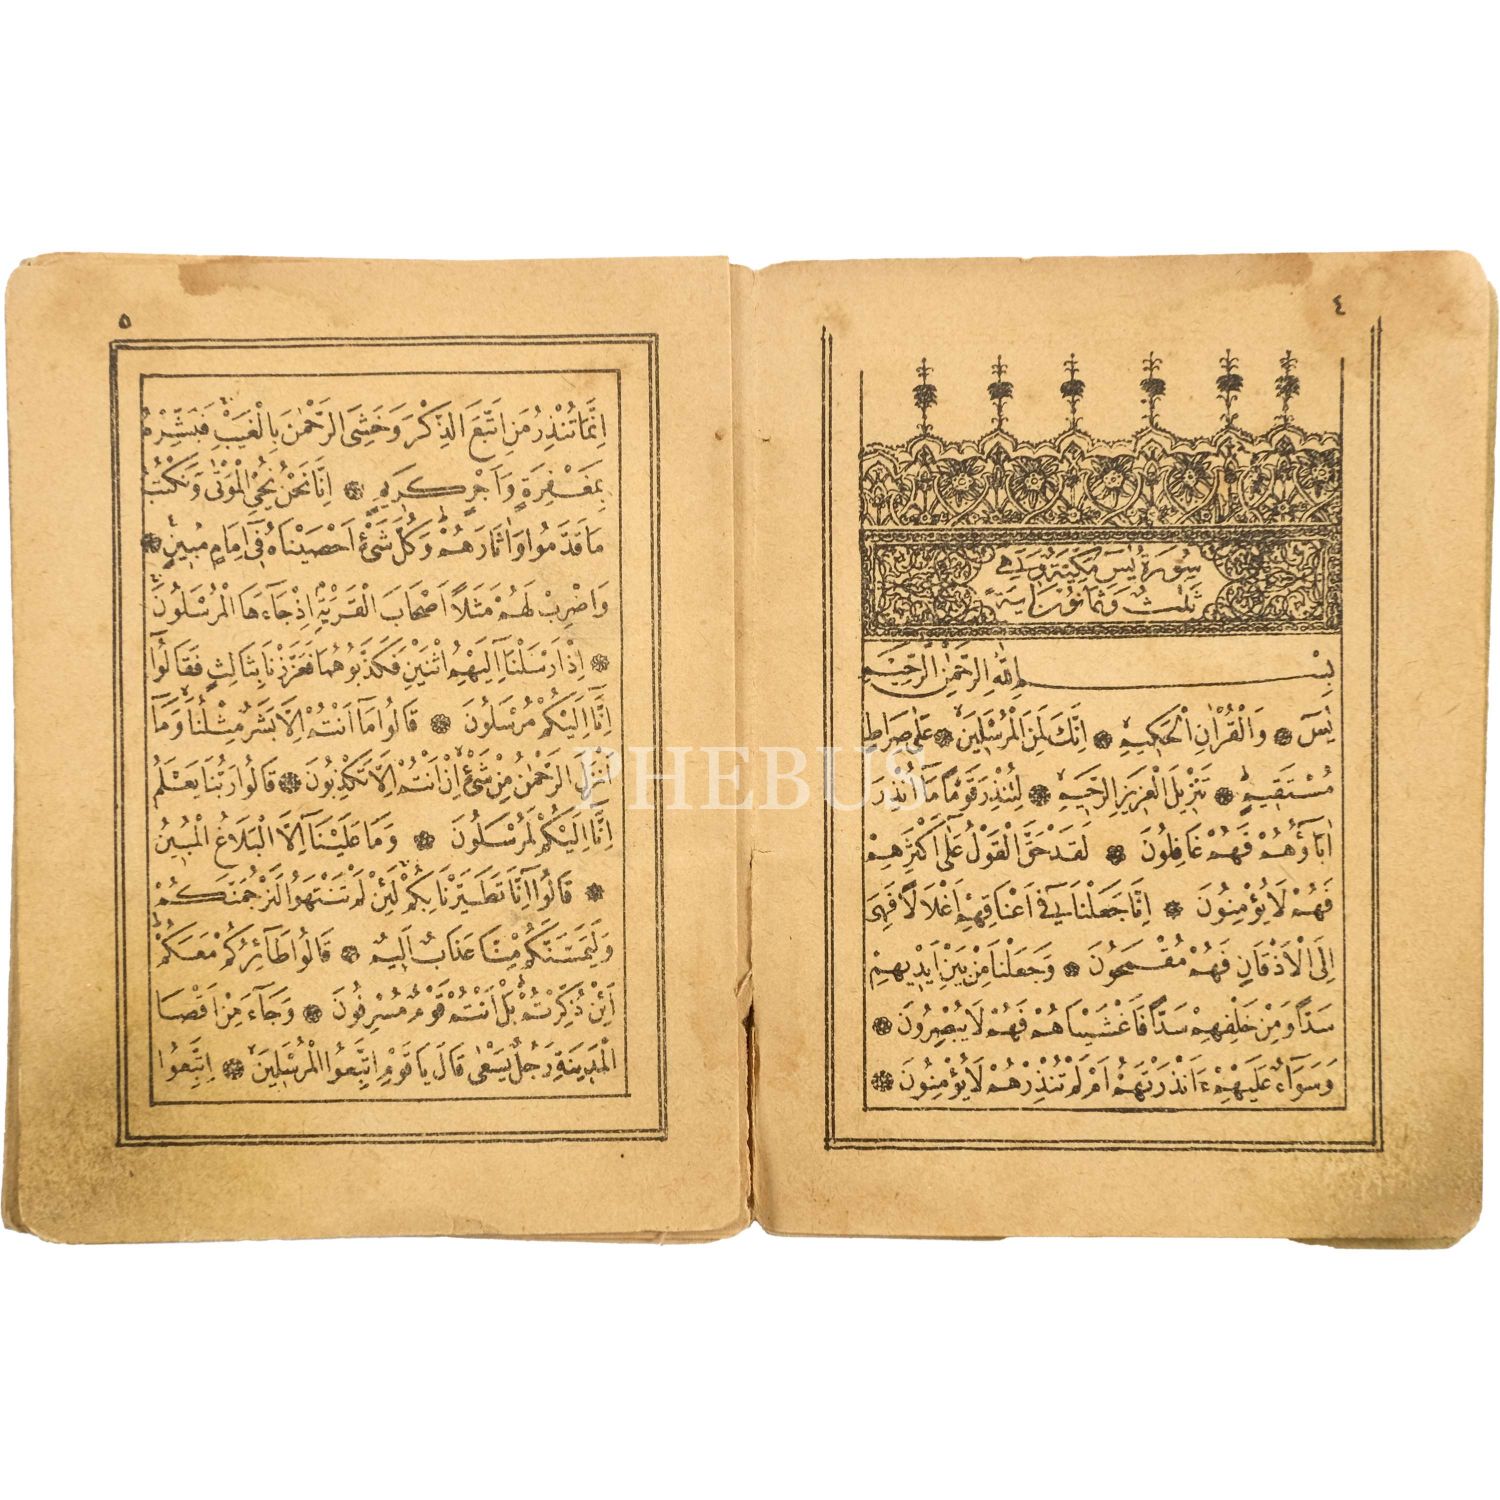 ٤
سُورَةُ يٰسٓ مَكِّيَّةٌ وَهِيَ
ثَلٰثٌ وَثَمَانُونَ اٰيَةً
بِسْمِ اللّٰهِ الرَّحْمٰنِ الرَّحِيمِ
يٰسٓ ۞ وَالْقُرْاٰنِ الْحَكِيمِ ۞ اِنَّكَ لَمِنَ الْمُرْسَلِينَ ۞ عَلٰى صِرَاطٍ
مُسْتَقِيمٍ ۞ تَنْزِيلَ الْعَزِيزِ الرَّحِيمِ ۞ لِتُنْذِرَ قَوْمًا مَٓا اُنْذِرَ
اٰبَٓاؤُهُمْ فَهُمْ غَافِلُونَ ۞ لَقَدْ حَقَّ الْقَوْلُ عَلٰٓى اَكْثَرِهِمْ
فَهُمْ لَا يُؤْمِنُونَ ۞ اِنَّا جَعَلْنَا فِٓى اَعْنَاقِهِمْ اَغْلَالًا فَهِىَ
اِلَى الْاَذْقَانِ فَهُمْ مُقْمَحُونَ ۞ وَجَعَلْنَا مِنْ بَيْنِ اَيْدِيهِمْ
سَدًّا وَمِنْ خَلْفِهِمْ سَدًّا فَاَغْشَيْنَاهُمْ فَهُمْ لَا يُبْصِرُونَ ۞
وَسَوَٓاءٌ عَلَيْهِمْ ءَاَنْذَرْتَهُمْ اَمْ لَمْ تُنْذِرْهُمْ لَا يُؤْمِنُونَ ۞
٥
اِنَّمَا تُنْذِرُ مَنِ اتَّبَعَ الذِّكْرَ وَخَشِىَ الرَّحْمٰنَ بِالْغَيْبِ فَبَشِّرْهُ
بِمَغْفِرَةٍ وَاَجْرٍ كَرِيمٍ ۞ اِنَّا نَحْنُ نُحْيِ الْمَوْتٰى وَنَكْتُبُ
مَا قَدَّمُوا وَاٰثَارَهُمْ وَكُلَّ شَىْءٍ اَحْصَيْنَاهُ فِٓى اِمَامٍ مُبِينٍ ۞
وَاضْرِبْ لَهُمْ مَثَلًا اَصْحَابَ الْقَرْيَةِ اِذْ جَٓاءَهَا الْمُرْسَلُونَ
۞ اِذْ اَرْسَلْنَٓا اِلَيْهِمُ اثْنَيْنِ فَكَذَّبُوهُمَا فَعَزَّزْنَا بِثَالِثٍ فَقَالُٓوا
اِنَّٓا اِلَيْكُمْ مُرْسَلُونَ ۞ قَالُوا مَٓا اَنْتُمْ اِلَّا بَشَرٌ مِثْلُنَا وَمَٓا
اَنْزَلَ الرَّحْمٰنُ مِنْ شَىْءٍ اِنْ اَنْتُمْ اِلَّا تَكْذِبُونَ ۞ قَالُوا رَبُّنَا يَعْلَمُ
اِنَّٓا اِلَيْكُمْ لَمُرْسَلُونَ ۞ وَمَا عَلَيْنَٓا اِلَّا الْبَلَاغُ الْمُبِينُ
۞ قَالُٓوا اِنَّا تَطَيَّرْنَا بِكُمْ لَئِنْ لَمْ تَنْتَهُوا لَنَرْجُمَنَّكُمْ
وَلَيَمَسَّنَّكُمْ مِنَّا عَذَابٌ اَلِيمٌ ۞ قَالُوا طَٓائِرُكُمْ مَعَكُمْ
اَئِنْ ذُكِّرْتُمْ بَلْ اَنْتُمْ قَوْمٌ مُسْرِفُونَ ۞ وَجَٓاءَ مِنْ اَقْصَا
الْمَدِينَةِ رَجُلٌ يَسْعٰى قَالَ يَا قَوْمِ اتَّبِعُوا الْمُرْسَلِينَ ۞ اِتَّبِعُوا
PHEBUS